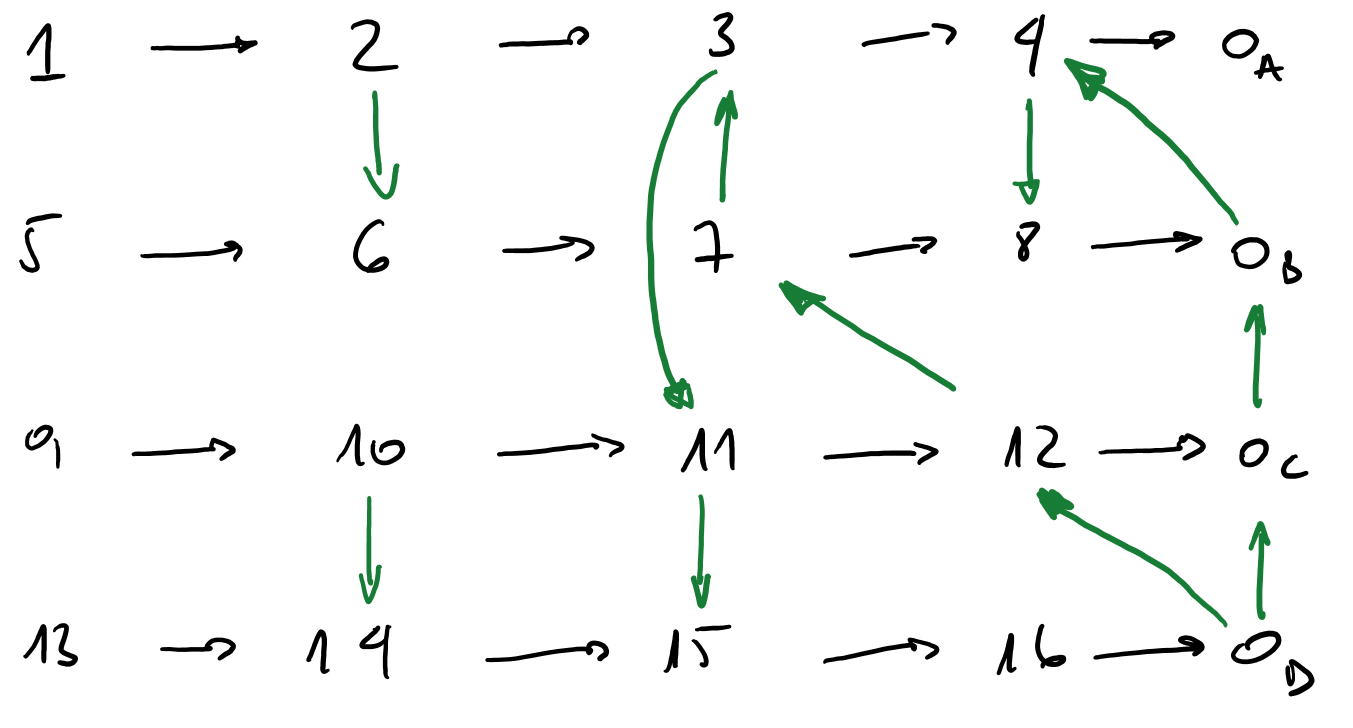 1 → 2 → 3 → 4 → 0A
5 → 6 → 7 → 8 → 0B
9 → 10 → 11 → 12 → 0C
13 → 14 → 15 → 16 → 0D